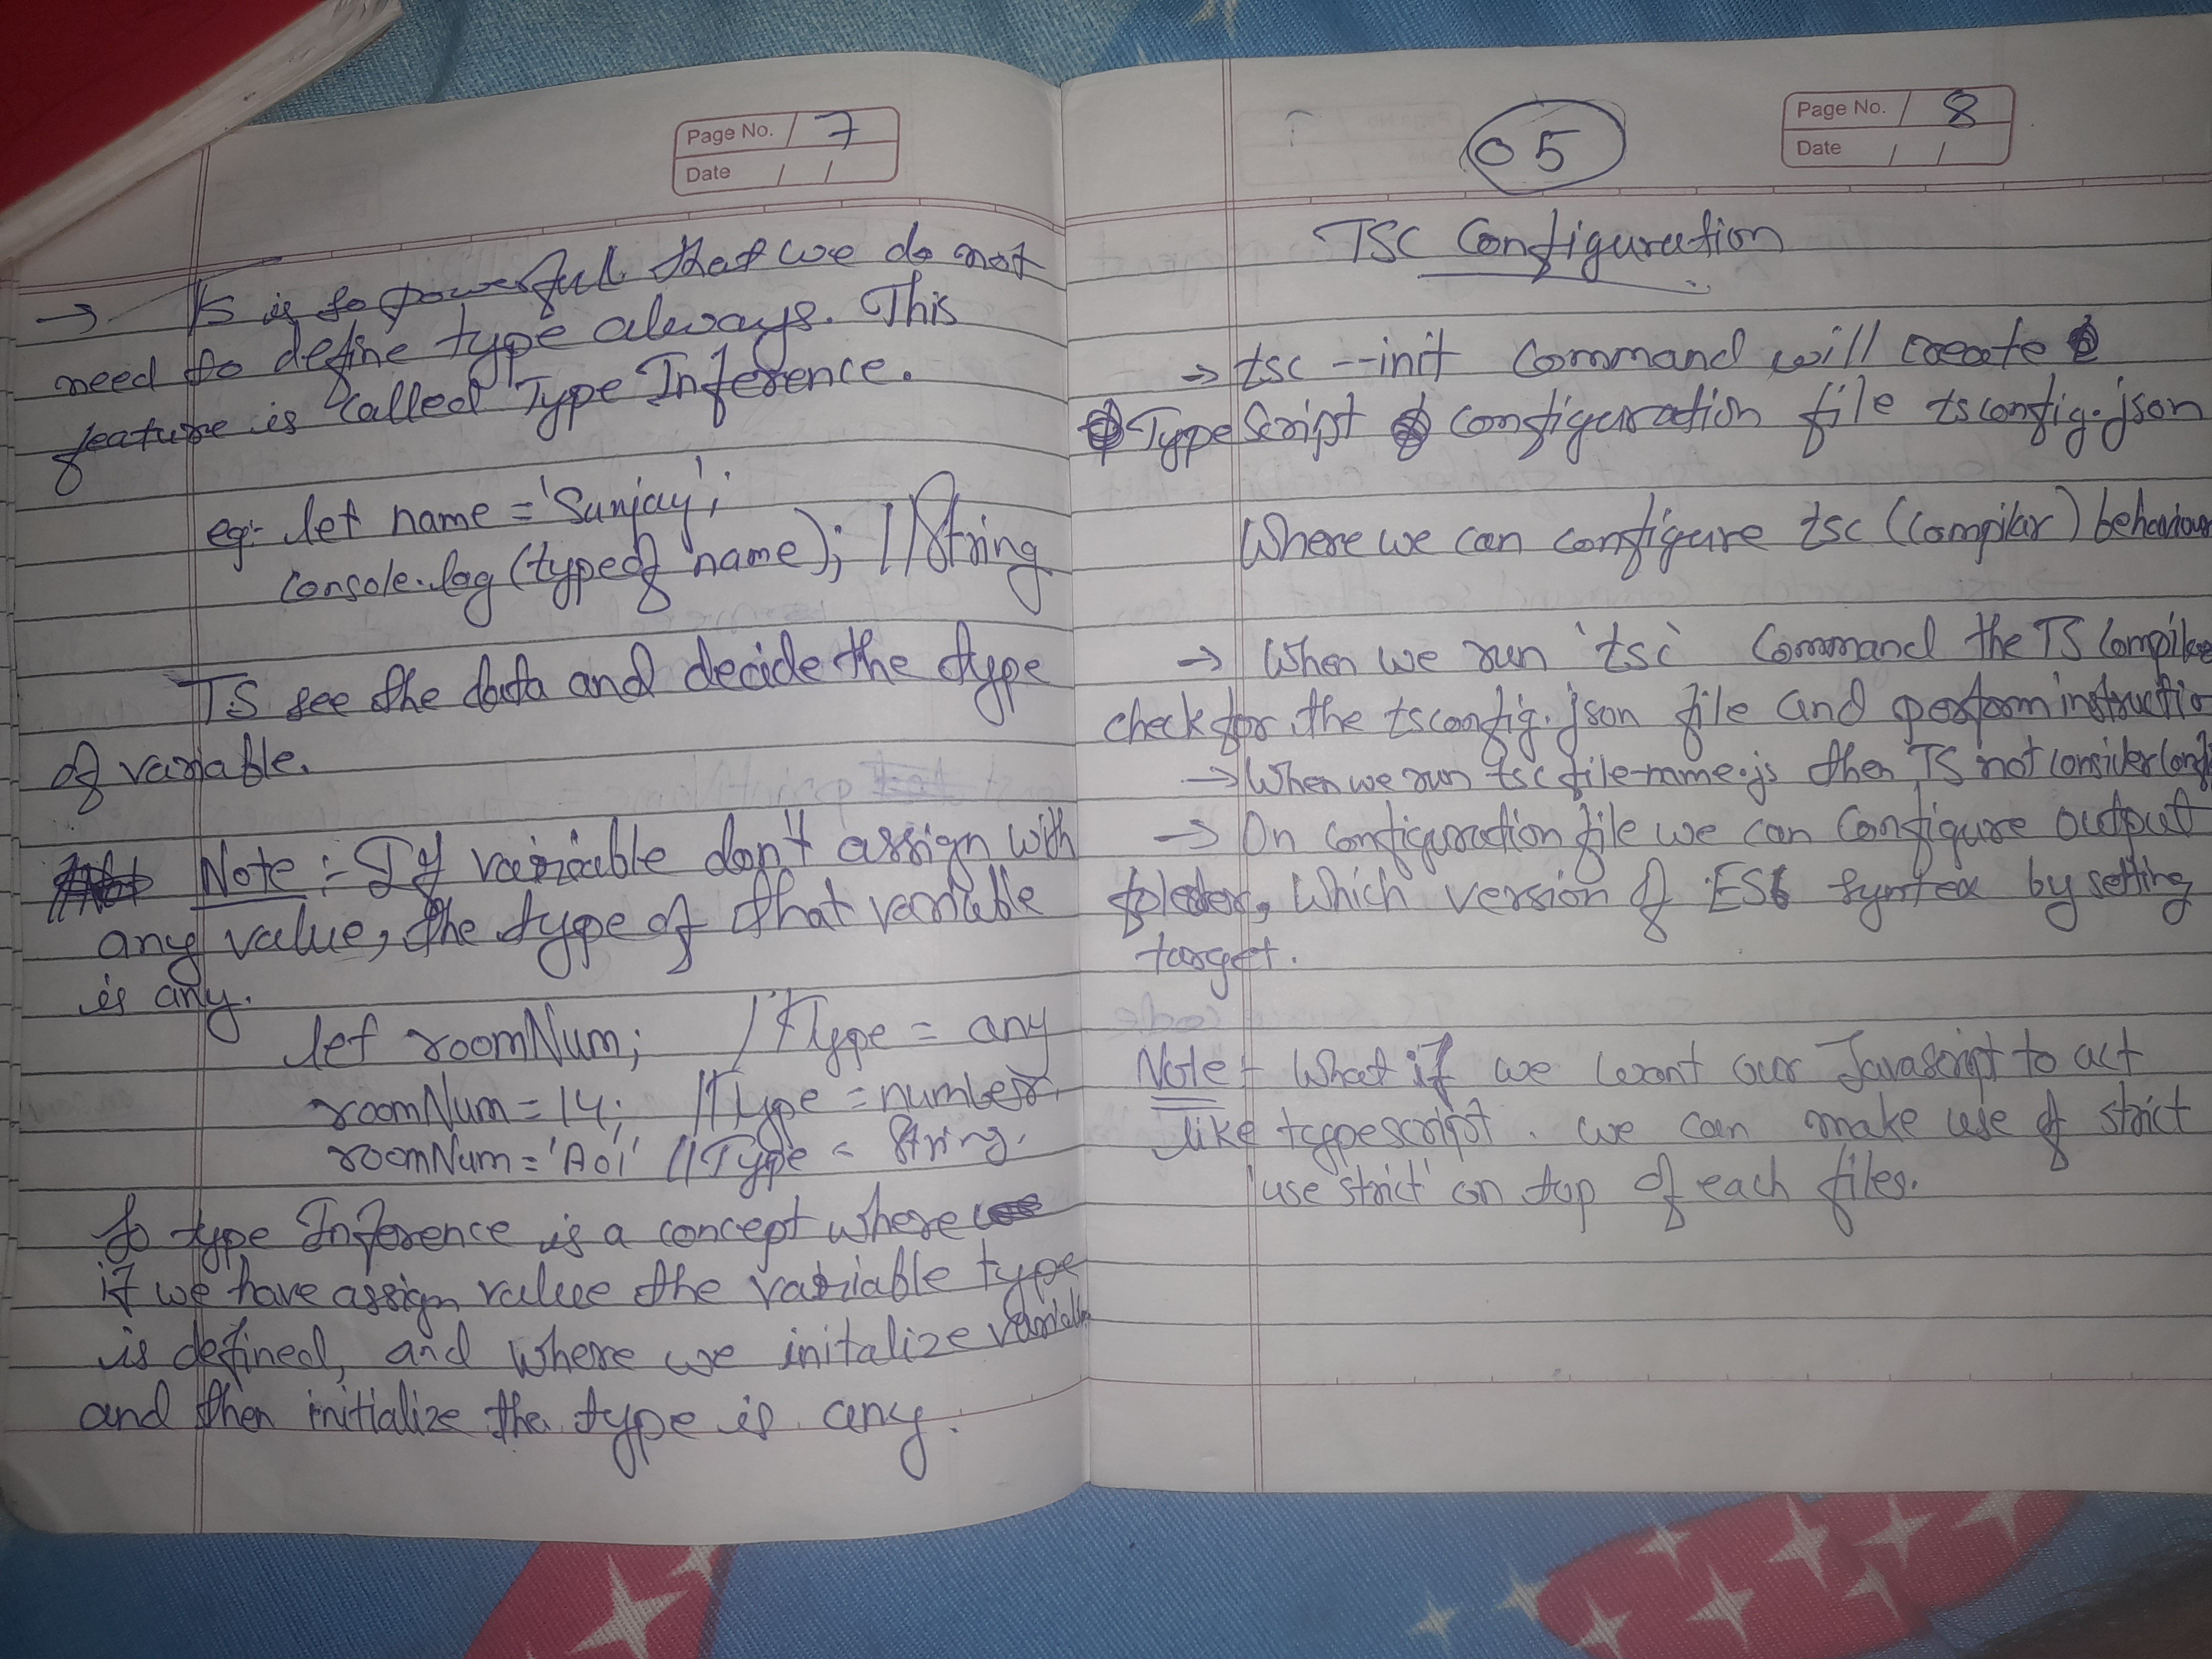 Page No. 7
Date / /
→ TS is so powerful that we do not
need to define type always. This
feature is called Type Inference.
eg:- let name = 'Sunjay';
console.log(typeof name); //String
TS see the data and decide the type
of variable.
Note :- If variable don't assign with
any value, the type of that variable
is any.
let roomNum; //Type = any
roomNum = 14; //Type = number.
roomNum = 'A01' //Type = String.
So type Inference is a concept where
if we have assign value the variable type
is defined, and where we initalize variable
and then initialize the type is any.
05
Page No. 8
Date / /
TSC Configuration
→ tsc --init Command will create
TypeScript configuration file tsconfig.json
Where we can configure tsc (compilar) behaviour
→ When we run 'tsc' Command the TS Compiler
check for the tsconfig.json file and perform instructio
→ When we run tsc file-name.js then TS not consider
→ On configuration file we can configure output
foleder, Which version of ES6 syntex by setting
target.
Note :- What if we want our Javascript to act
like typescript. we can make use of strict
'use strict' on top of each files.